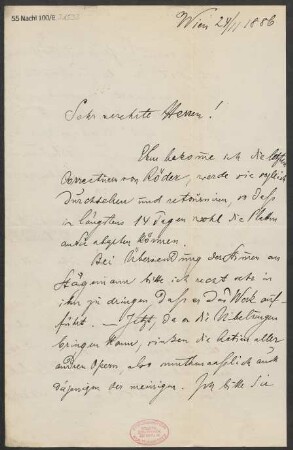 55 Nachl 100/B
Wien 24/11 1886
Sehr verehrte Herren!
Nun bekomme ich die letzten
Correcturen von Röder, werde sie sogleich
durchsehen und retourniren, so dass
in längstens 14 Tagen wohl die Platten
abgehen können.
Bei Übersendung des an
Hägemann bitte ich recht sehr in
ihn zu dringen dass er das Werk auf-
führt. — Jetzt, da er die Nibelungen
bringen kann, sinken die Actien aller
andren Opern, also muthmasslich auch
diejenigen der meinigen. Ich bitte Sie